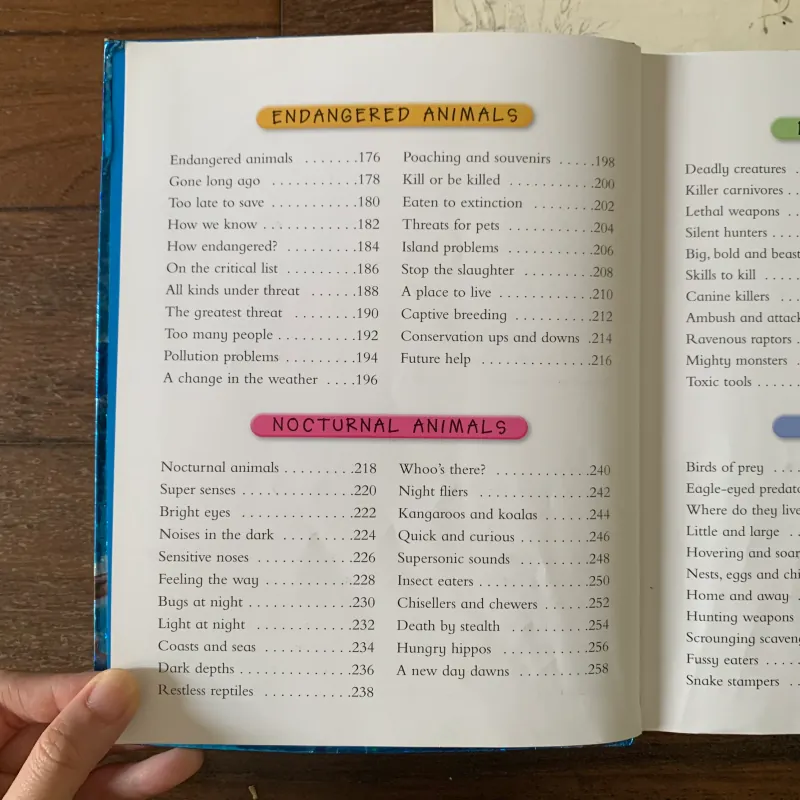 ENDANGERED ANIMALS
Endangered animals .......176
Gone long ago ..........178
Too late to save .........180
How we know ..........182
How endangered? ........184
On the critical list ........186
All kinds under threat ......188
The greatest threat ........190
Too many people .........192
Pollution problems ........194
A change in the weather ....196
Poaching and souvenirs .....198
Kill or be killed .........200
Eaten to extinction .......202
Threats for pets .........204
Island problems .........206
Stop the slaughter ........208
A place to live ..........210
Captive breeding ........212
Conservation ups and downs .214
Future help ............216
NOCTURNAL ANIMALS
Nocturnal animals ........218
Super senses ............220
Bright eyes ............222
Noises in the dark ........224
Sensitive noses ..........226
Feeling the way .........228
Bugs at night ...........230
Light at night ..........232
Coasts and seas ..........234
Dark depths ............236
Restless reptiles ..........238
Whoo's there? ..........240
Night fliers ............242
Kangaroos and koalas ......244
Quick and curious ........246
Supersonic sounds ........248
Insect eaters ............250
Chisellers and chewers ......252
Death by stealth .........254
Hungry hippos ..........256
A new day dawns .........258
Deadly creatures .
Killer carnivores ..
Lethal weapons ..
Silent hunters ....
Big, bold and
Skills to kill .....
Canine killers ...
Ambush and
Ravenous raptors .
Mighty monsters .
Toxic tools ......
Birds of prey ....
Eagle-eyed
Where do they
Little and large ..
Hovering and
Nests, eggs and
Home and away .
Hunting weapons
Scrounging
Fussy eaters ....
Snake stampers ..